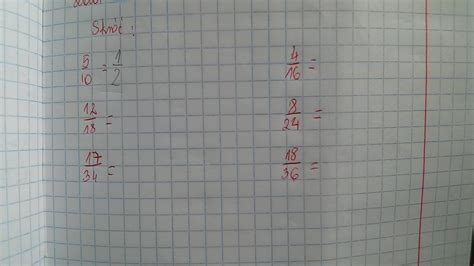 Skróć:
5/10 = 1/2
4/16 =
12/18 =
8/24 =
17/34 =
18/36 =